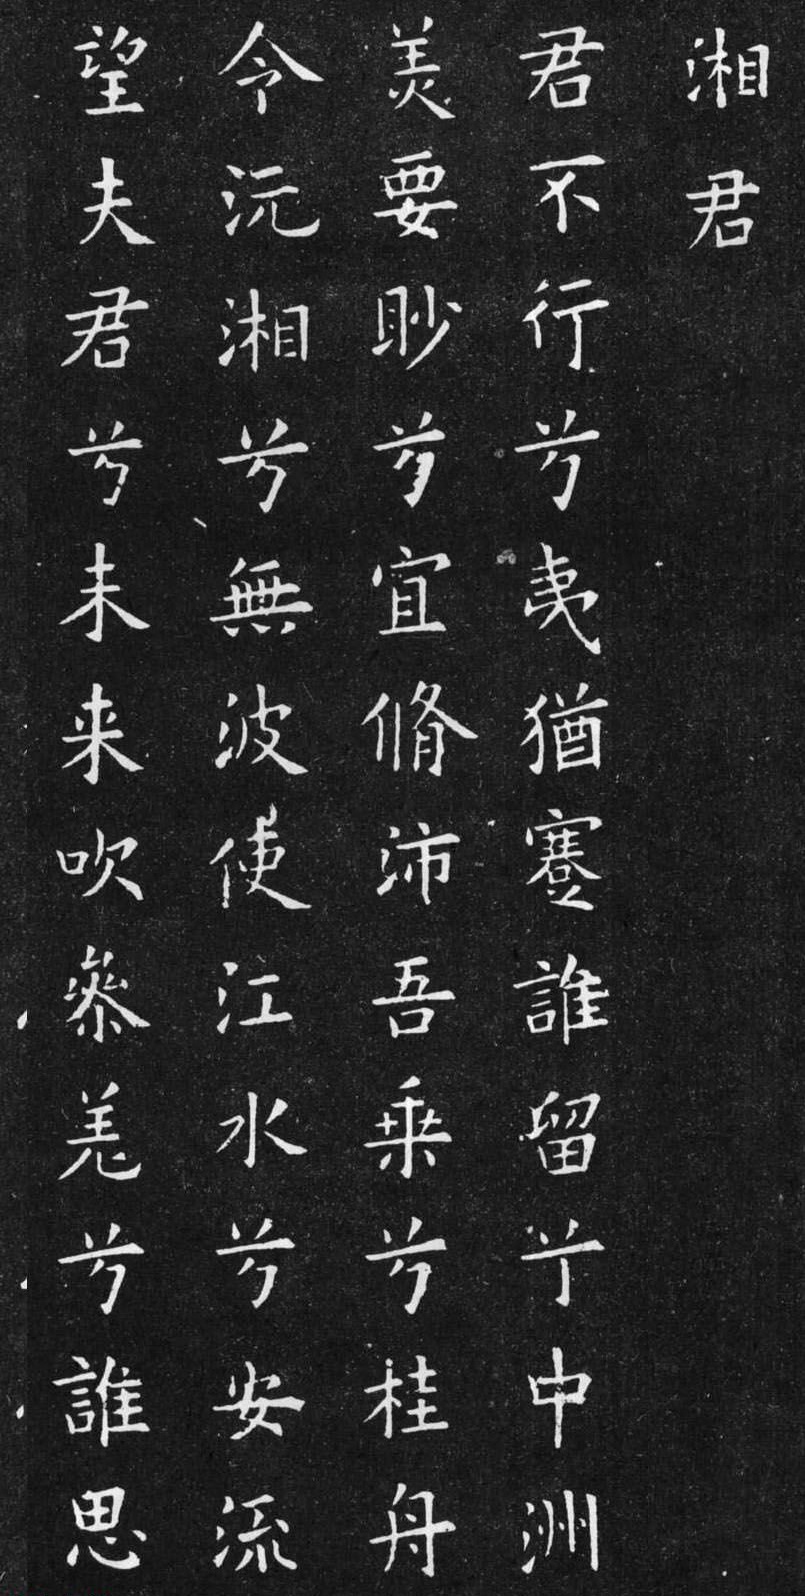 湘君
君不行兮夷猶蹇誰留兮中洲
美要眇兮宜脩沛吾乗兮桂舟
令沅湘兮無波使江水兮安流
望夫君兮未来吹參羌兮誰思